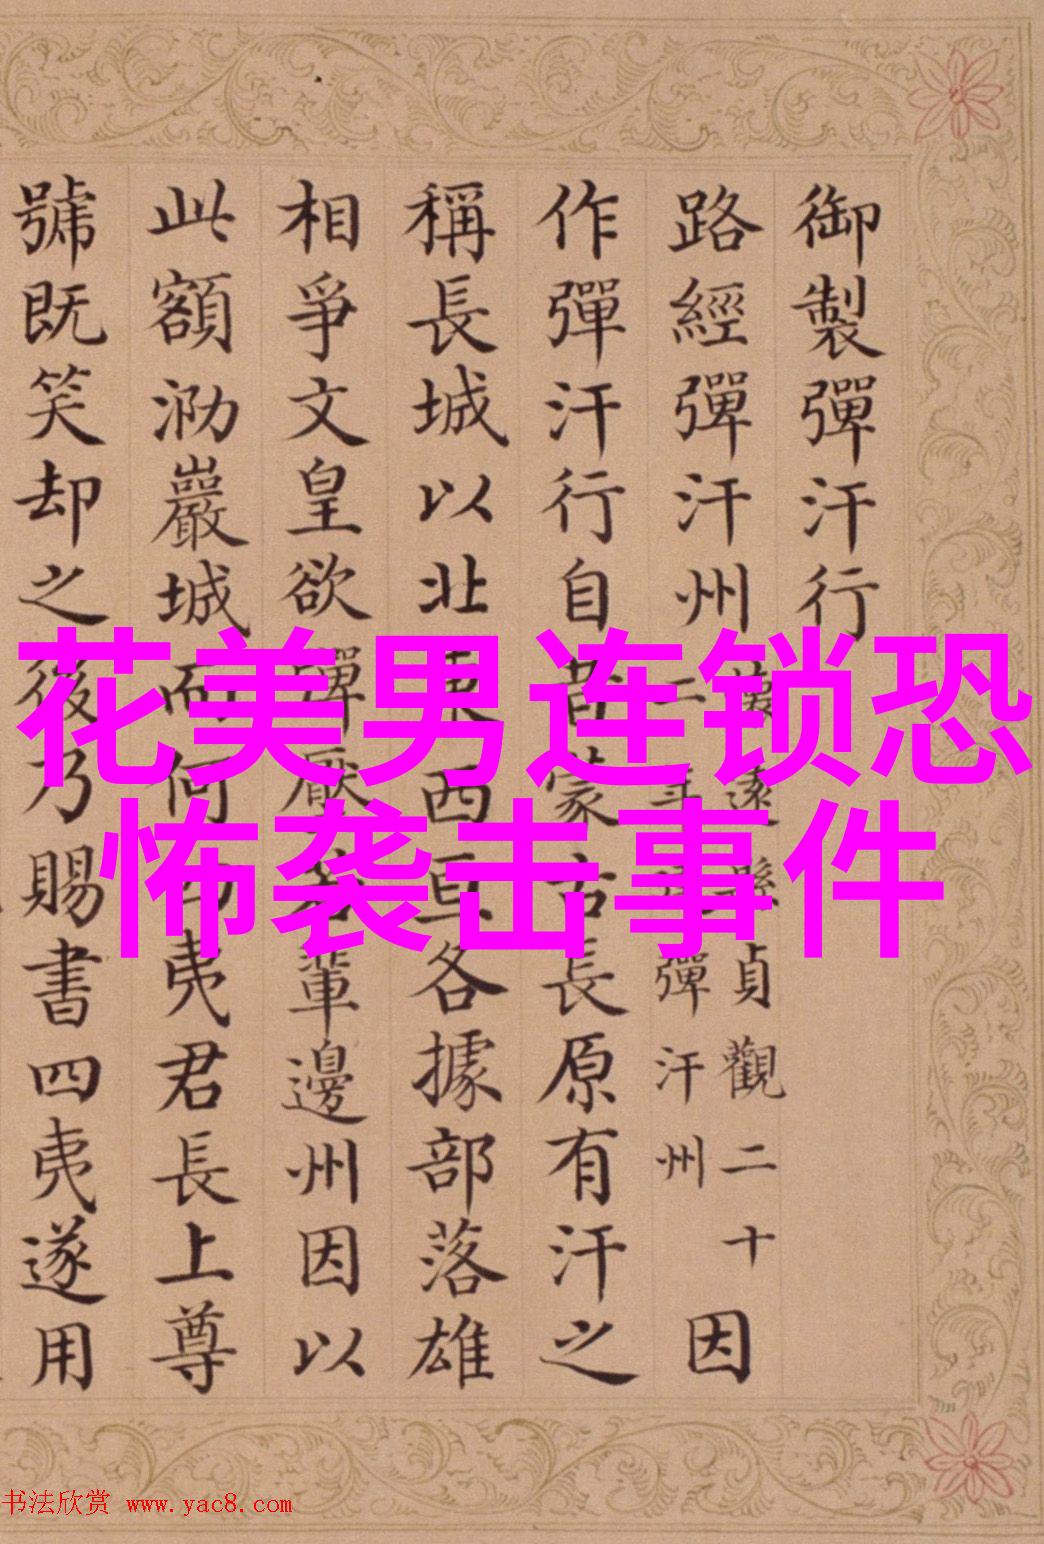 御製彈汗行
路經彈汗州
懷遠縣貞觀二十
二年彈汗州
因
作彈汗行自昔蒙古長原有汗之
稱長城以北東西互各據部落雄
相爭文皇欲彈壓若輩邊州因以
此額泐巖城而何夷君長上尊
號既笑却之後乃賜書四夷遂用
花美男连锁恐
怖袭击事件
书法欣赏 www.yac8.com